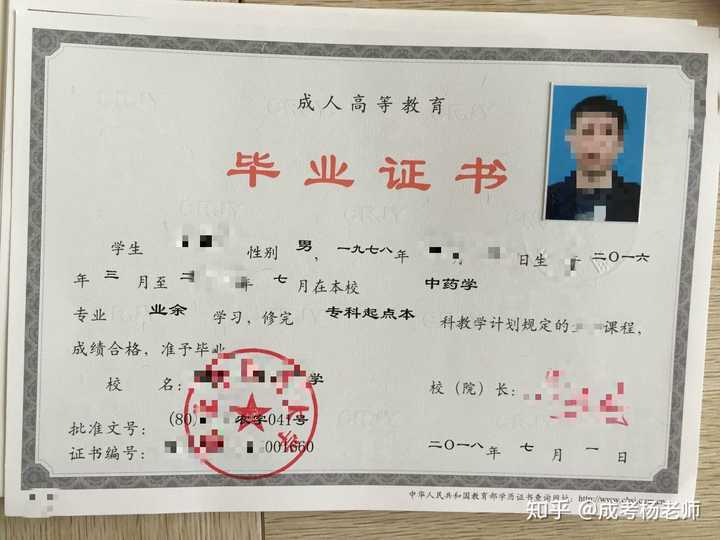 成人高等教育
毕业证书
学生 性别 男，一九七八年 日生 二〇一六
年 三 月至 二 年 七 月在本校 中药学
专业 业余 学习，修完 专科起点本 科教学计划规定的 课程，
成绩合格，准予毕业。
校 名： 学 校（院）长：
批准文号：(80) 农字041号
证书编号： 001660 二〇一八年 七 月 一 日
中华人民共和国教育部学历证书查询网址：http://www.chsi.com.cn
知乎 @成考杨老师